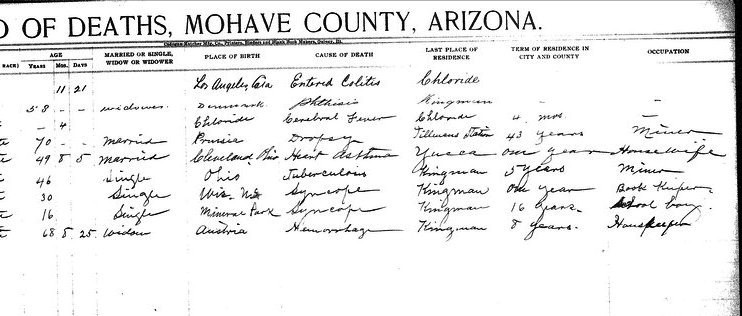 D OF DEATHS, MOHAVE COUNTY, ARIZONA.
RACE) AGE YEARS MOS. DAYS MARRIED OR SINGLE, WIDOW OR WIDOWER PLACE OF BIRTH CAUSE OF DEATH LAST PLACE OF RESIDENCE TERM OF RESIDENCE IN CITY AND COUNTY OCCUPATION
11 21 Los Angeles, Entered Colitis Chloride
58 - - widower Denmark Phthisis Kingman - -
- 4 Chloride Cerebral Fever Chloride 4 mos -
70 - - married Prusia Dropsy 43 years Miner
49 8 5 Married Cleveland Ohio Heart Asthma Yucca one year Housewife
46 Single Ohio Tuberculosis Kingman 5 years Miner
30 Single Wis. Syncope Kingman one year Book Keeper
16 Single Mineral Park Syncope Kingman 16 years. school boy.
68 8 25 Widow Austria Hemorrhage Kingman 8 years. Housekeeper